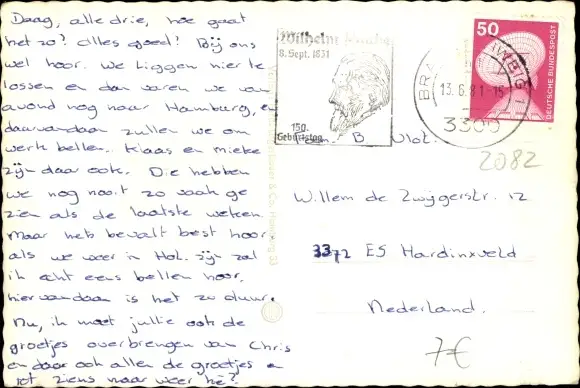 Daag, alle drie, hoe gaat
het zo? Alles goed? Bij ons
wel hoor. We liggen hier te
lossen en dan varen we van
avond nog naar Hamburg, en
daarvandaan zullen we om
werk bellen. Klaas en mieke
zijn daar ook. Die hebben
we nog nooit zo vaak ge
zien als de laatste weken.
Maar het bevalt best hoor
als we weer in Hol. zijn zal
ik echt eens bellen hoor,
hiervandaan is het zo duur.
Nu, ik moet jullie ook de
groetjes overbrengen van Chris
en daar ook allen de groetjes
tot ziens maar weer hè?
Wilhelm Raabe
8. Sept. 1831
150.
Geburtstag
BRAUNSCHWEIG
13.6.81-15
3300
50
DEUTSCHE BUNDESPOST
2082
Fam. B Vlot.
Willem de Zwijgerstr. 12
3372 ES Hardinxveld
Nederland.
7€